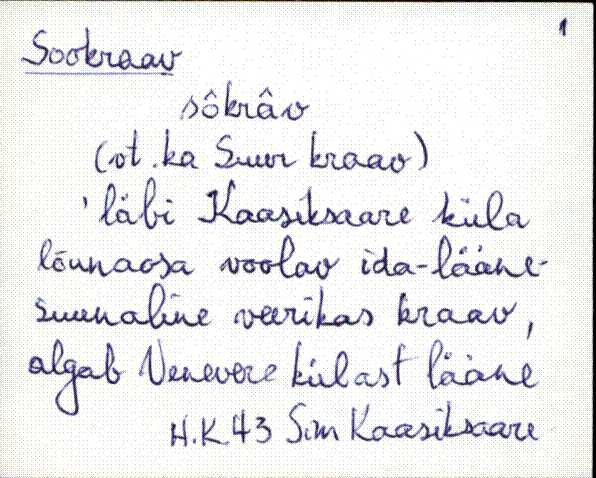 1
Sookraav
sôkrâv
(vt. ka Suur kraav)
'läbi Kaasiksaare küla
lõunaosa voolav ida-lääne-
suunaline veerikas kraav,
algab Venevere külast lääne
H.K. 43 Sim Kaasiksaare